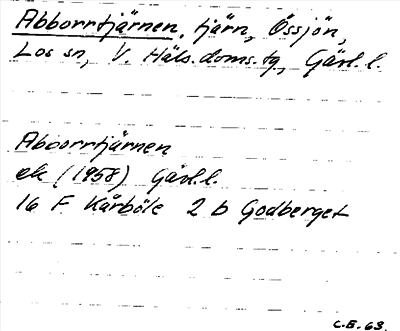 Abborrtjärnen, tjärn, Össjön,
Los sn, V. Häls. doms. tg, Gävl. l.
Abborrtjärnen
ek (1958) Gävl. l.
16 F Kårböle 2 b Godberget
C.E. 63.